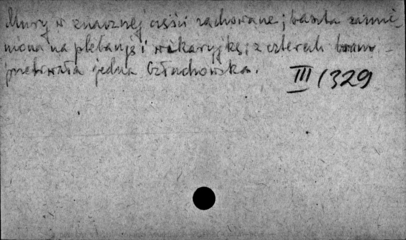 Mury w znacznej części zachowane; baszta zamie
niona na plebanję i wikaryjkę; z czterech bram
przetrwała jedna Człuchowska.
III/1329